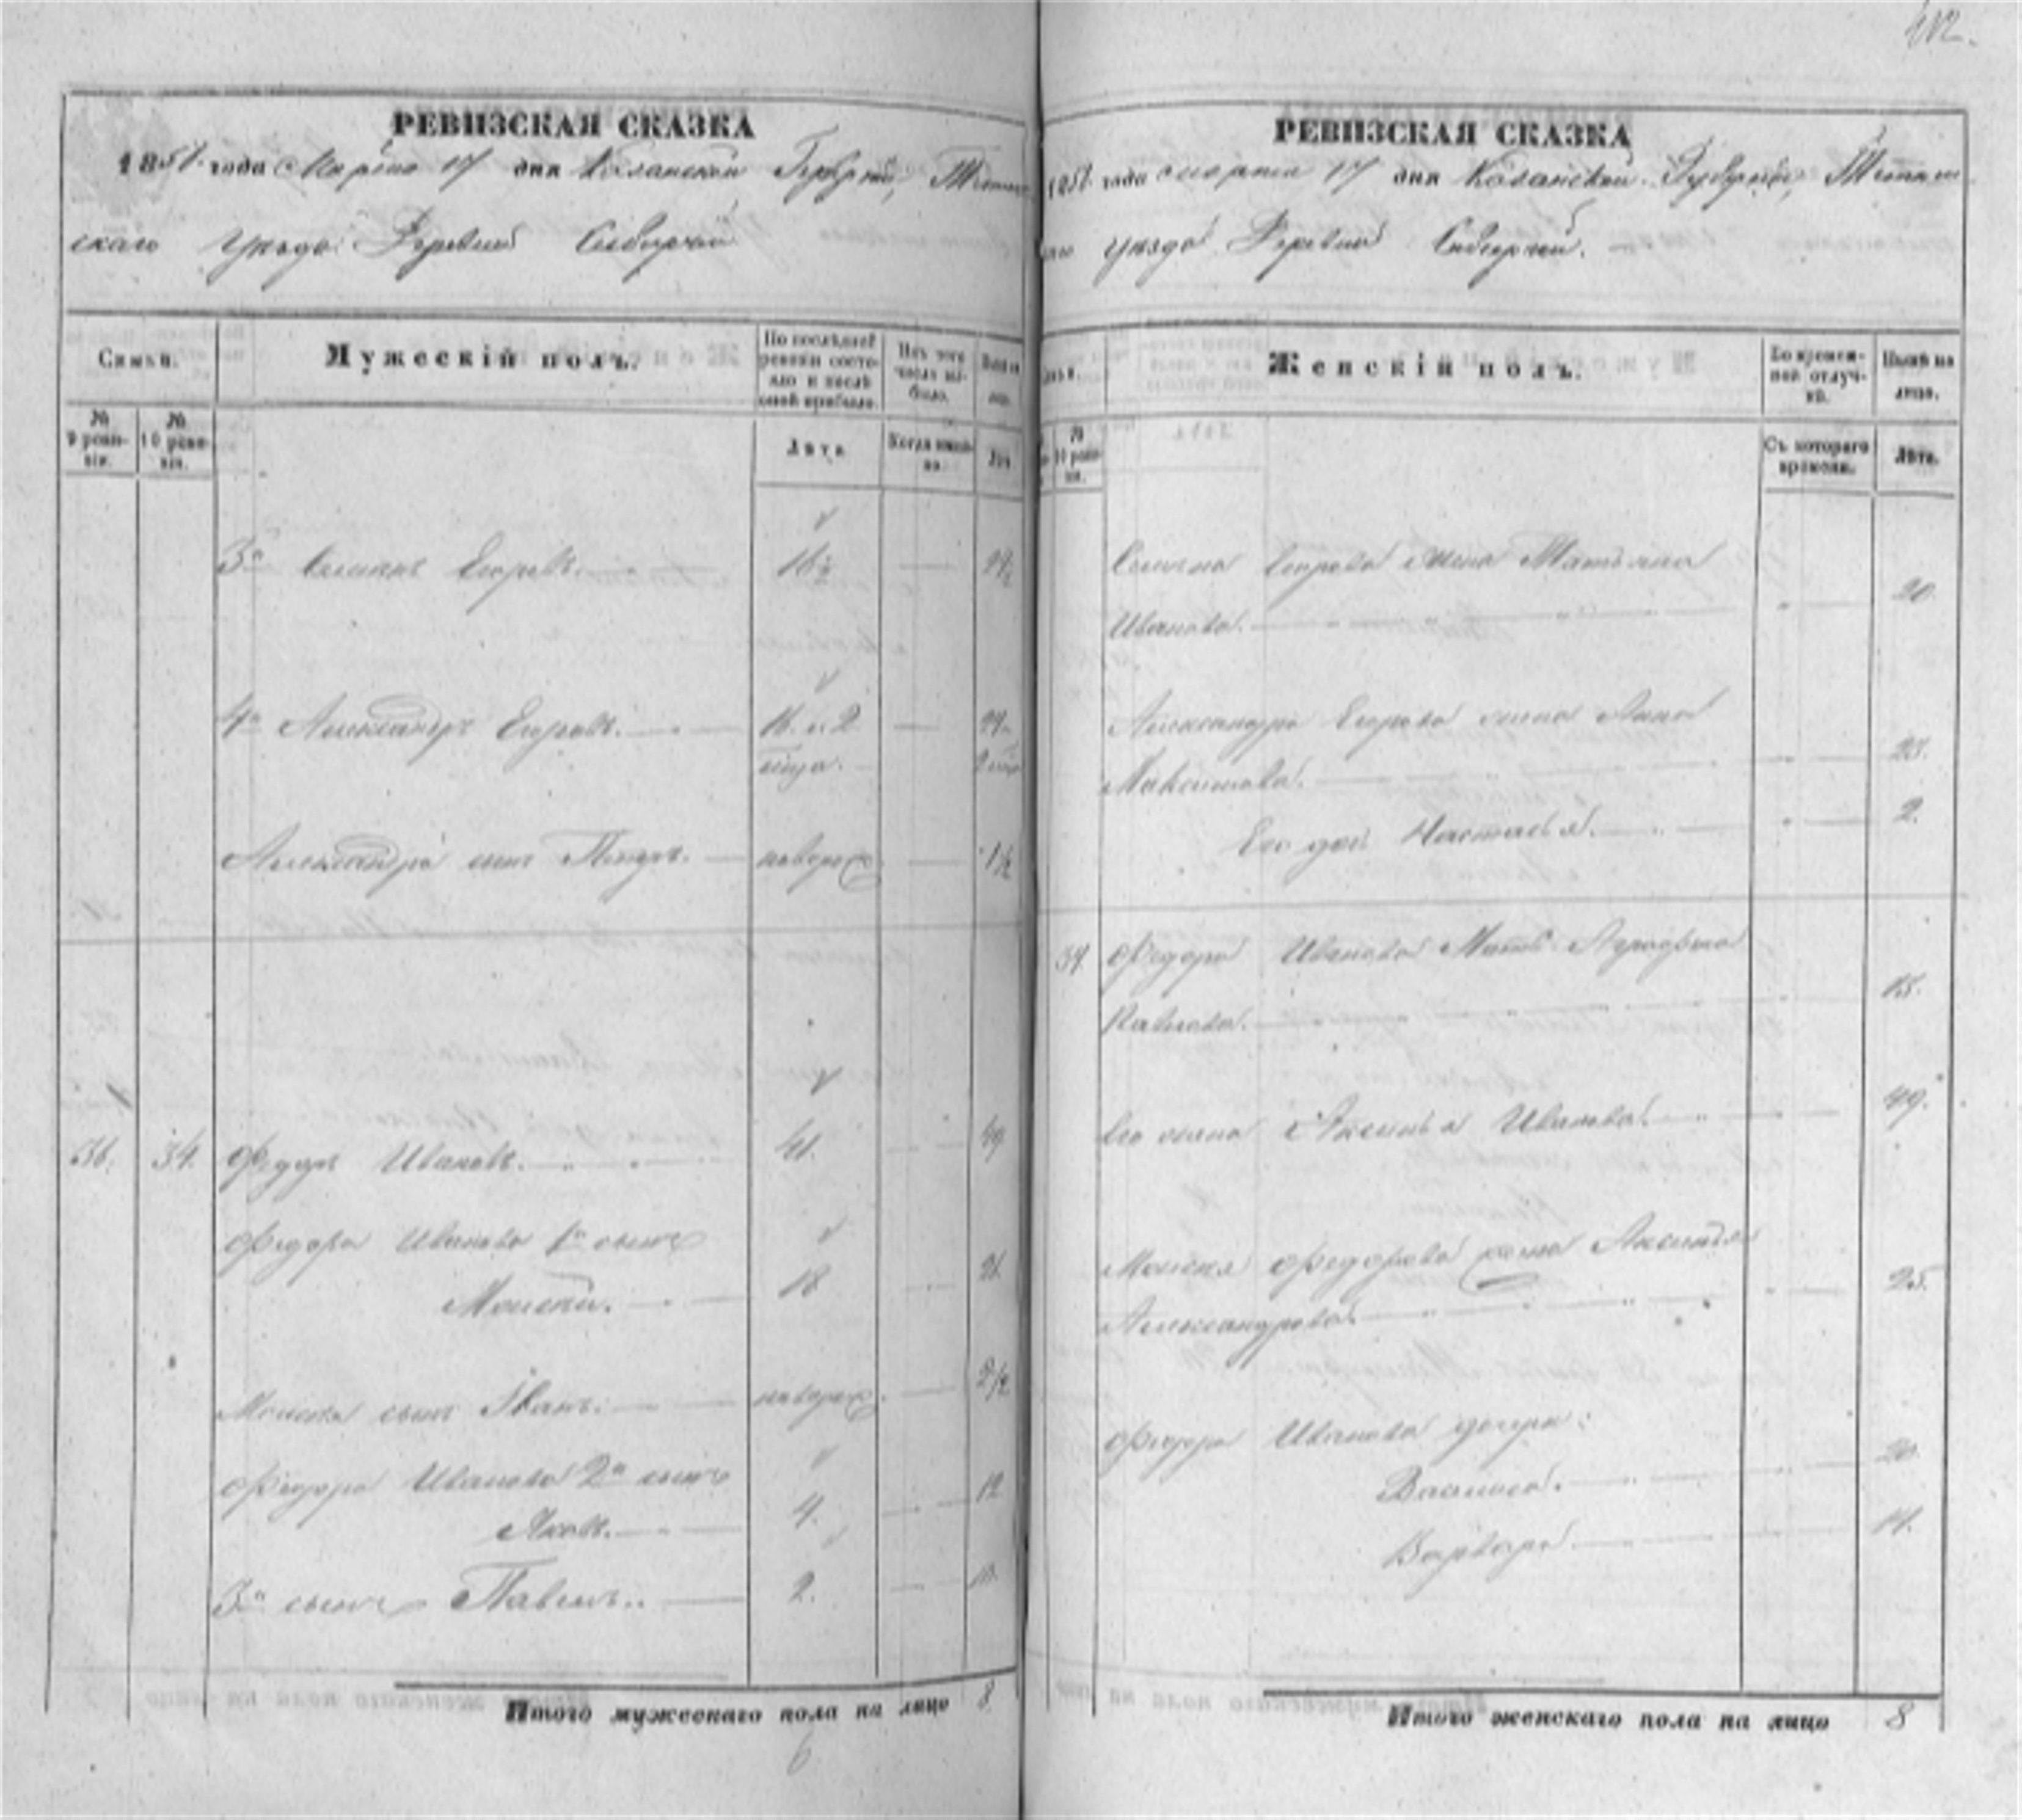 РЕВИЗСКАЯ СКАЗКА
1858 года Марта 17 дня Казанской Губернии, Тетюш
скаго Уезда Деревни
Семьи.
Мужескій полъ.
По последней ревизіи состояло и после оной прибыло.
Изъ того числа выбыло.
Ныне на лицо.
№ 9 ревизіи.
№ 10 ревизіи.
Лета
Когда именно
Лета
3й Семенъ Егоровъ. 16½ 24½
4й Александръ Егоровъ. 16. и 2
Александра сынъ Петръ. новорож 1½
36. 34. Федоръ Ивановъ. 41. 49
Федора Иванова 1й сынъ
Моисей. 18 26
Моисея сынъ Иванъ. новорож. 2½
Федора Иванова 2й сынъ
Яковъ. 4. 12
3й сынъ Павелъ. 2. 10.
Итого мужескаго пола на лицо 8
РЕВИЗСКАЯ СКАЗКА
1858 года марта 17 дня Казанской Губерніи, Тетюш
скаго Уезда Деревни
Женскій полъ.
Во временной отлучке.
Ныне на лицо.
№ 10 ревизіи.
Съ котораго времени.
Лета.
Семена Егорова жена Татьяна
Иванова. 20.
Александра Егорова жена Анна
Максимова. 23.
Его дочь Настасья. 2.
34. Федора Иванова Мать
Павлова.
Его жена Аксинья Иванова. 49.
Моисея Федорова жена Аксинья
Александрова. 25.
Федора Иванова дочери:
Василиса. 20.
Варвара. 14.
Итого женскаго пола на лицо 8